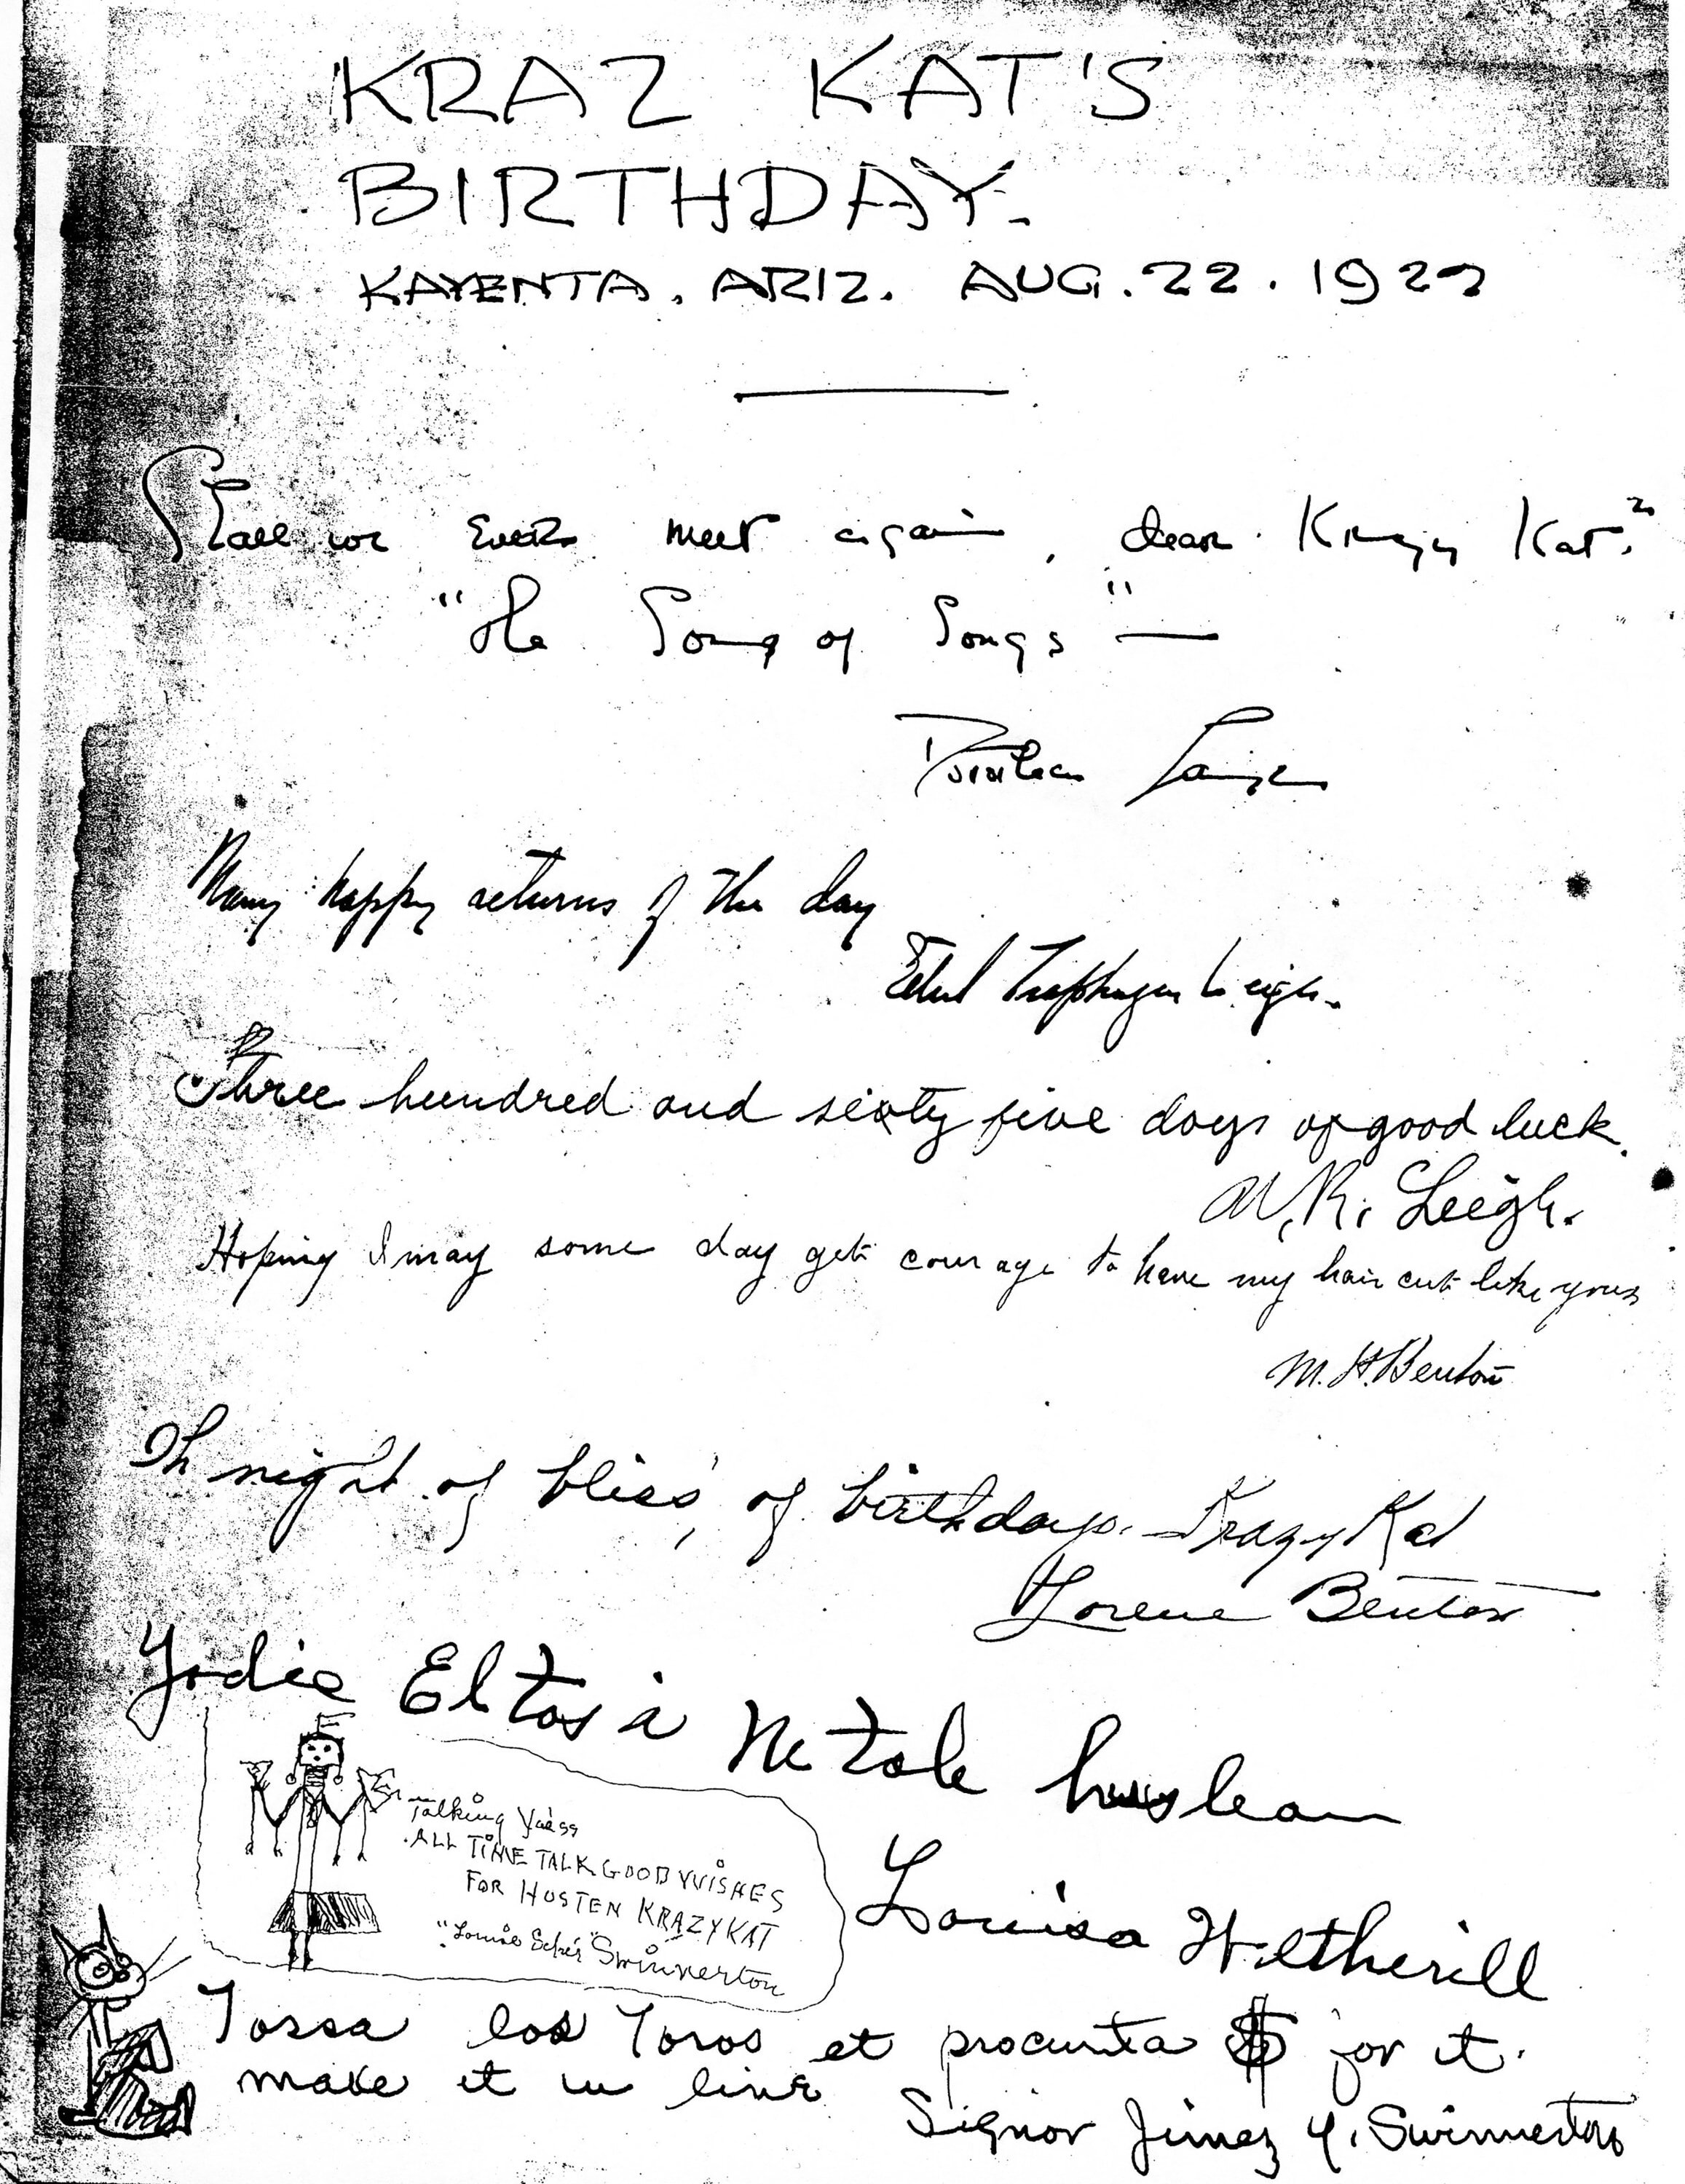 KRAZ KAT'S
BIRTHDAY.
KAYENTA. ARIZ. AUG. 22. 1922
Shall we ever meet again, dear Krazy Kat?
"The Song of Songs" —
Dorothea Lange
Many happy returns of the day
Ethel Traphagen Leigh.
Three hundred and sixty five days of good luck.
W. R. Leigh.
Hoping I may some day get courage to have my hair cut like yours
M. H. Benton
Oh night of bliss, of birthdays. Krazy Kat
Lorene Benton
Yodie Eltosi a Ne tole
Talking
ALL TIME TALK GOOD WISHES
FOR HOSTEN KRAZY KAT
"Louise Swinnerton
Louisa Wetherill
Tossa los Toros et procurita $ for it.
make it in line
Signor Jimez Y. Swinnerton